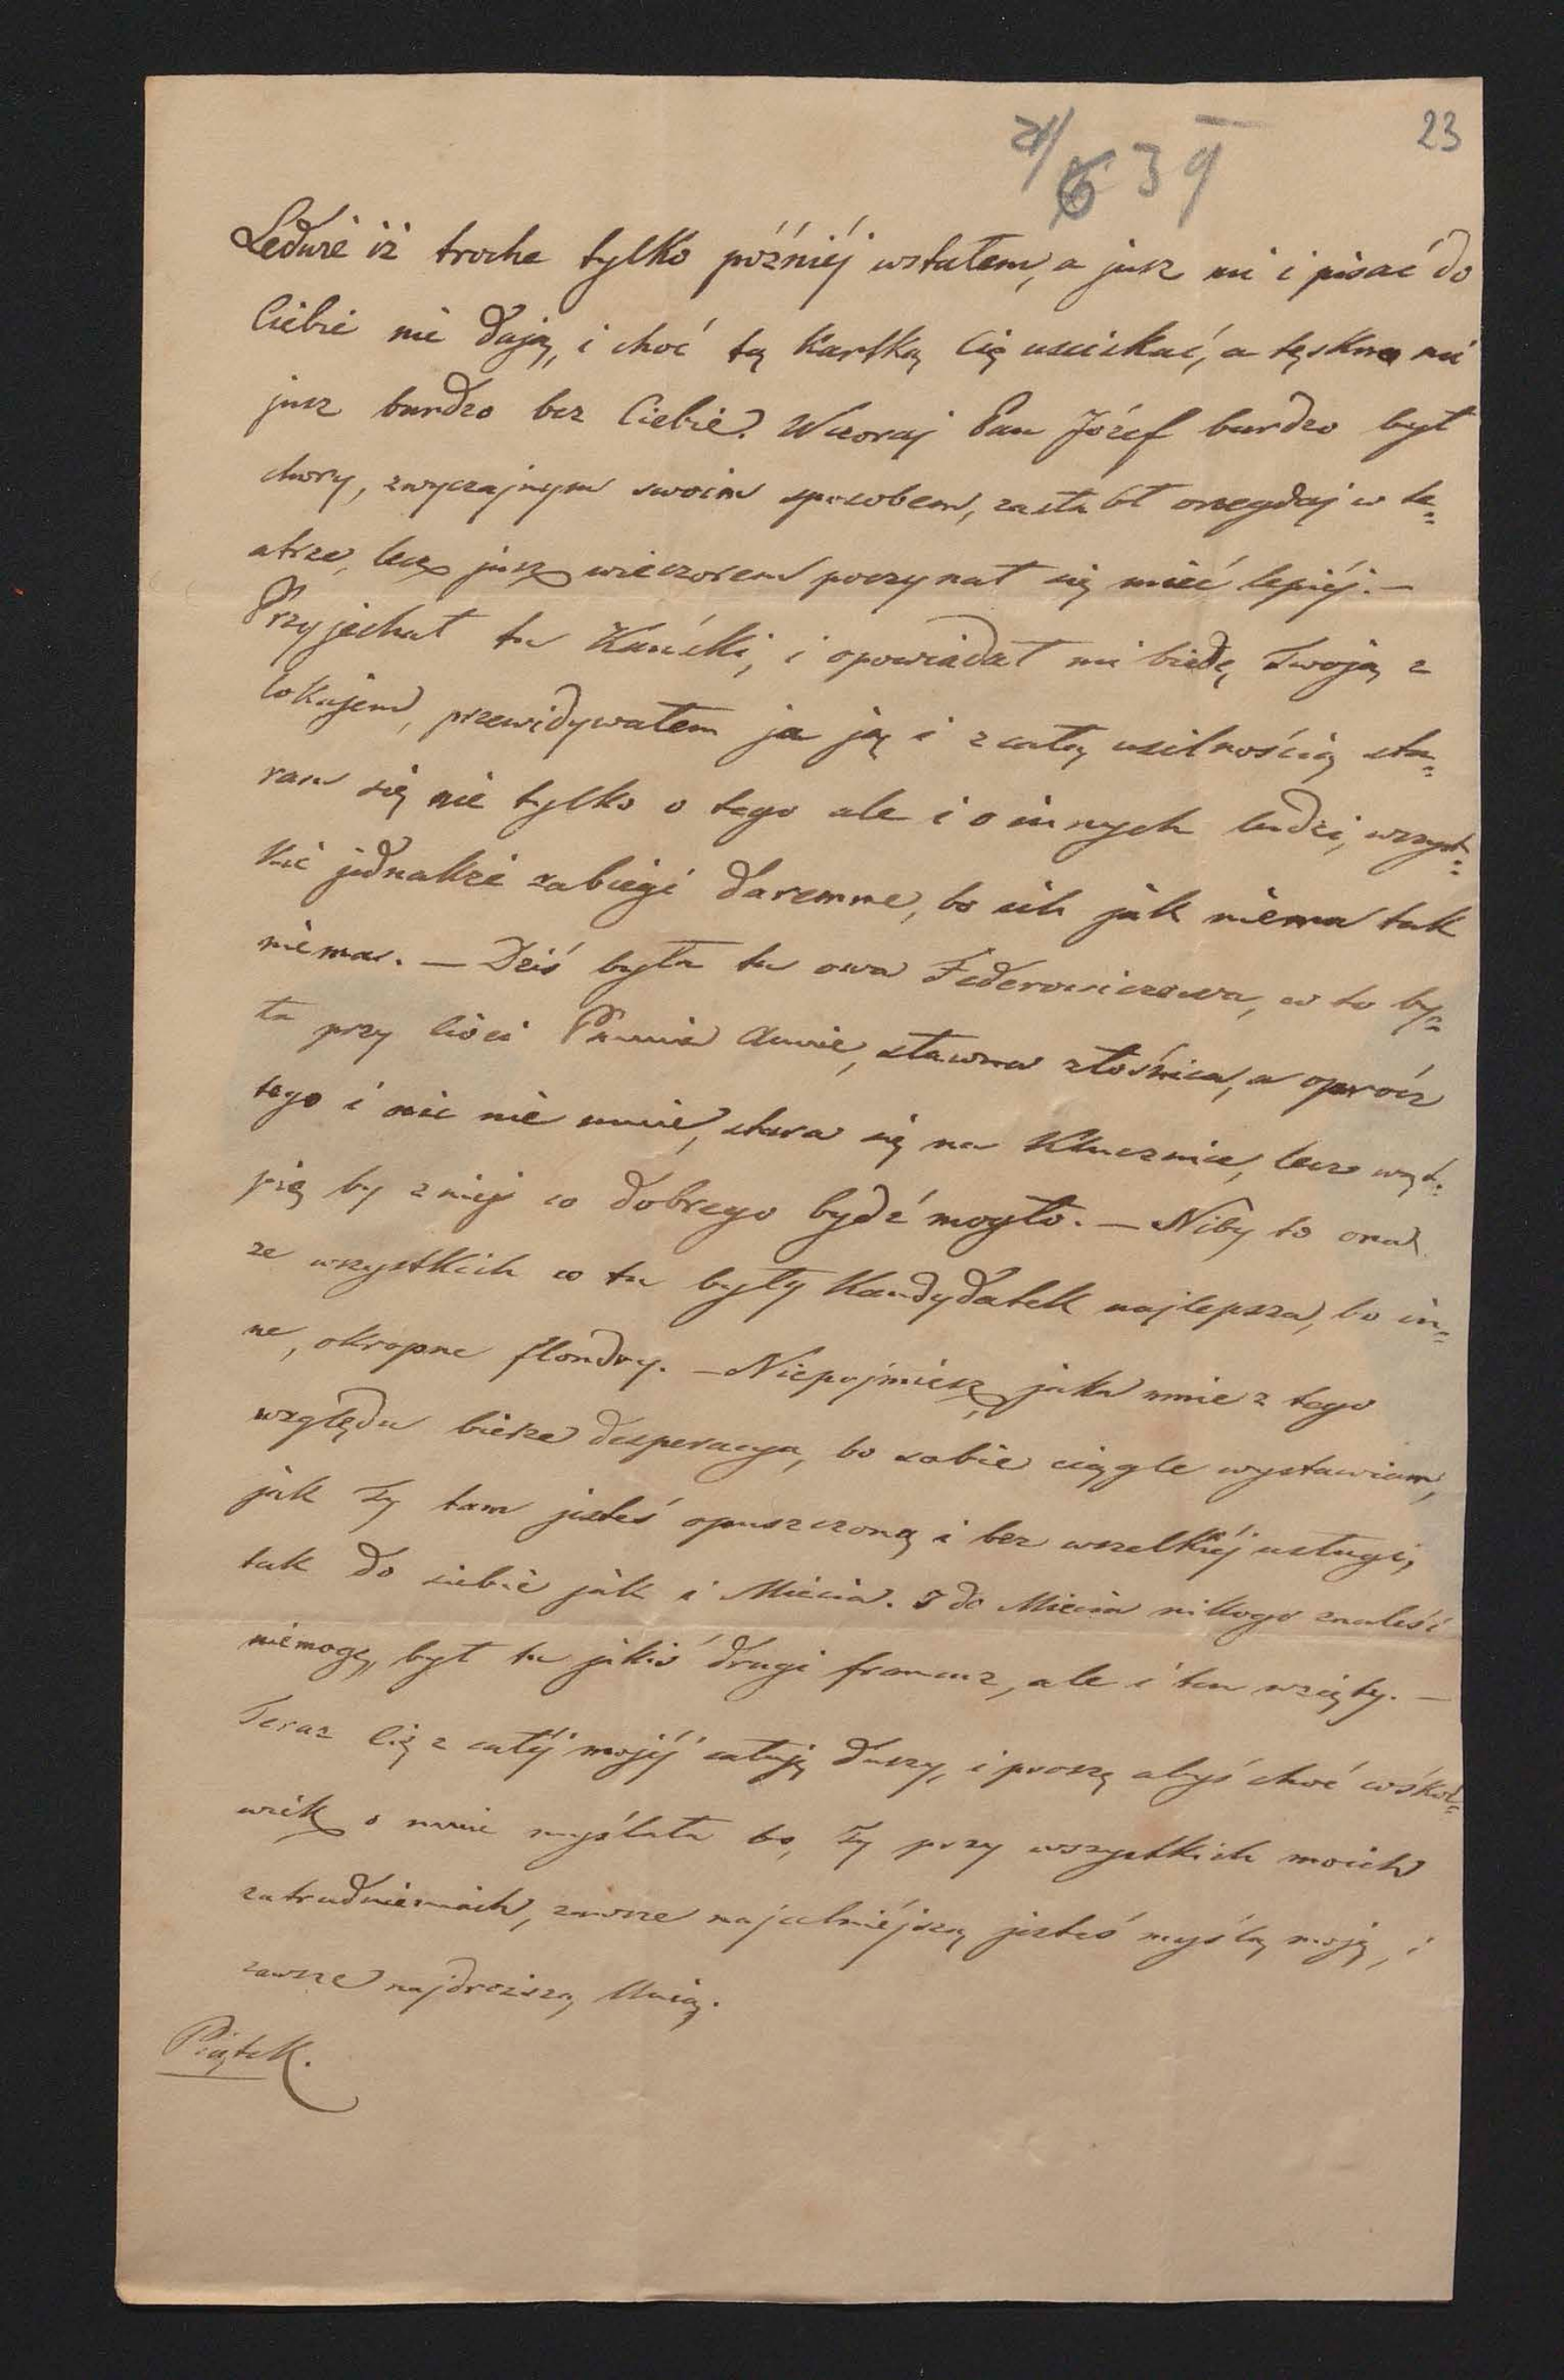 23
21/6 39
Ledwie iż troche tylko późniéj wstałem, a jusz mi i pisać do
Ciebie nie dają, i choć tą kartką Cię usciskać, a tęskno mi
jusz bardzo bez Ciebie. Wczoraj Pan Józef bardzo był
chory, zwyczajnym swoim sposobem, zasłabł onegdaj w te=
atrze, lecz jusz wieczorem poczynał się mieć lepiéj. —
Przyjechał tu Kański, i opowiadał mi biedę Twoją z
lokajem, przewidywałem ja ją i z całą usilnością sta=
ram się nie tylko o tego ale i o innych ludzi, wszyst=
kie jednakże zabiegi daremne, bo ich jak niema tak
niema. — Dziś była tu owa Federowiczowa, co to by=
ła przy Cioci Pannie Annie, sławna złośnica, a oprócz
tego i nic nie umie, stara się na Klucznice, lecz wąt=
pię by z niej co dobrego bydź mogło. — Niby to ona
ze wszystkich co tu były Kandydatek najlepsza, bo in=
ne, okropne flondry. — Niepojmiesz jaka mnie z tego
względu bierze desperacya, bo sobie ciągle wystawiam,
jak Ty tam jesteś opuszczoną i bez wszelkiéj usługi,
tak do siebie jak i Miecia. I do Miecia nikogo znaleść
niemogę, był tu jakiś drugi francuz, ale i ten wzięty. —
Teraz Cię z całéj mojéj całuję duszy, i proszę abyś choć cóśkol=
wiek o mnie myślała bo, Ty przy wszystkich moich
zatrudnieniach, zawsze najcelniéjszą jesteś myślą moją, i
zawsze najdroższą Unią.
Piątek.